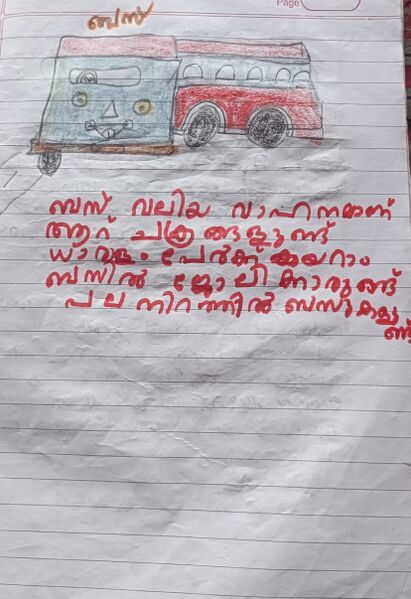 Page
ബസ്
ബസ് വലിയ വാഹനമാണ്
ആറ് ചക്രങ്ങളുണ്ട്
ധാരാളം പേർക്ക് കയറാം
ബസിൽ ജോലിക്കാരുണ്ട്
പല നിറത്തിൽ ബസുകളു
ണ്ട്